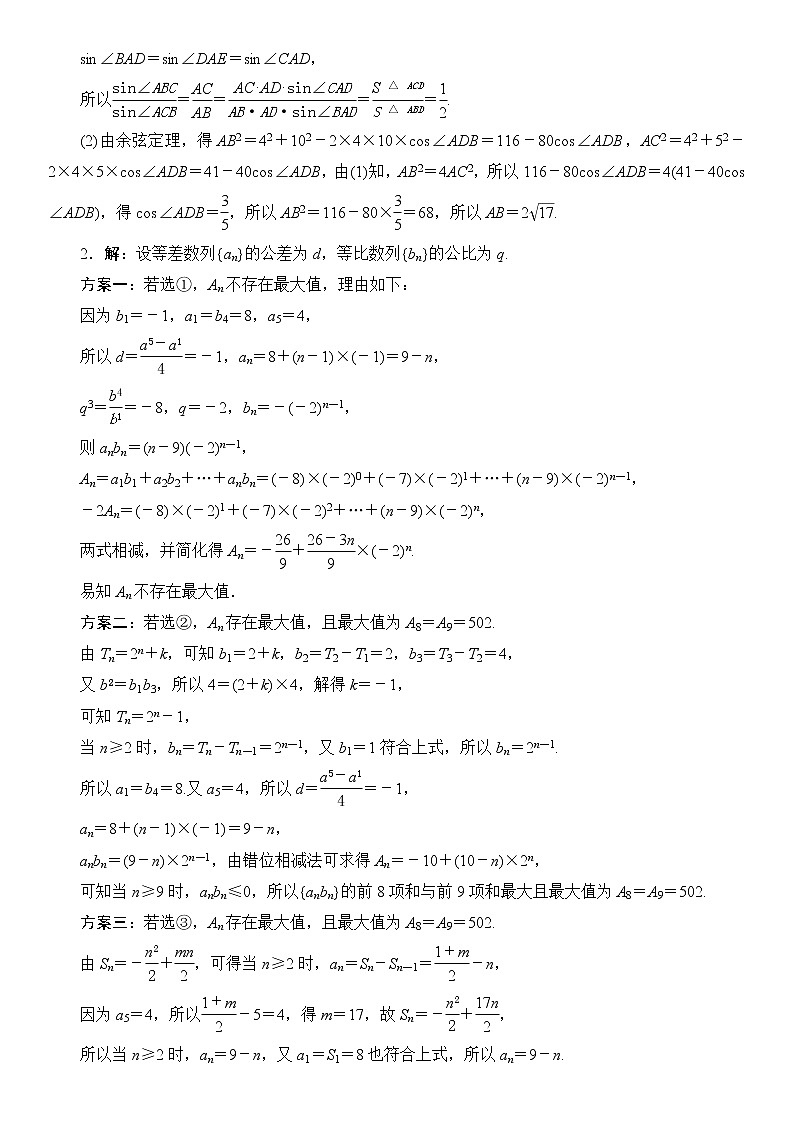 sin ∠BAD＝sin ∠DAE＝sin ∠CAD，
所以\frac{sin∠ABC}{sin∠ACB}=\frac{AC}{AB}=\frac{AC·AD·sin∠CAD}{AB·AD·sin∠BAD}=\frac{S_{△ACD}}{S_{△ABD}}=\frac{1}{2}.
(2)由余弦定理，得 AB²＝4²＋10²－2×4×10×cos∠ADB＝116－80cos∠ADB，AC²＝4²＋5²－
2×4×5×cos∠ADB＝41－40cos∠ADB，由(1)知，AB²＝4AC²，所以 116－80cos∠ADB＝4(41－40cos
∠ADB)，得 cos∠ADB＝\frac{3}{5}，所以 AB²＝116－80×\frac{3}{5}＝68，所以 AB＝2\sqrt{17}.
2．解：设等差数列{aₙ}的公差为 d，等比数列{bₙ}的公比为 q.
方案一：若选①，Aₙ不存在最大值，理由如下：
因为 b₁＝－1，a₁＝b₄＝8，a₅＝4，
所以 d＝\frac{a⁵－a¹}{4}＝－1，aₙ＝8＋(n－1)×(－1)＝9－n，
q³＝\frac{b⁴}{b¹}＝－8，q＝－2，bₙ＝－(－2)ⁿ⁻¹，
则 aₙbₙ＝(n－9)(－2)ⁿ⁻¹，
Aₙ＝a₁b₁＋a₂b₂＋…＋aₙbₙ＝(－8)×(－2)⁰＋(－7)×(－2)¹＋…＋(n－9)×(－2)ⁿ⁻¹，
－2Aₙ＝(－8)×(－2)¹＋(－7)×(－2)²＋…＋(n－9)×(－2)ⁿ，
两式相减，并简化得 Aₙ＝－\frac{26}{9}＋\frac{26－3n}{9}×(－2)ⁿ.
易知 Aₙ不存在最大值．
方案二：若选②，Aₙ存在最大值，且最大值为 A₈＝A₉＝502.
由 Tₙ＝2ⁿ＋k，可知 b₁＝2＋k，b₂＝T₂－T₁＝2，b₃＝T₃－T₂＝4，
又 b²＝b₁b₃，所以 4＝(2＋k)×4，解得 k＝－1，
可知 Tₙ＝2ⁿ－1，
当 n≥2 时，bₙ＝Tₙ－Tₙ₋₁＝2ⁿ⁻¹，又 b₁＝1 符合上式，所以 bₙ＝2ⁿ⁻¹.
所以 a₁＝b₄＝8.又 a₅＝4，所以 d＝\frac{a⁵－a¹}{4}＝－1，
aₙ＝8＋(n－1)×(－1)＝9－n，
aₙbₙ＝(9－n)×2ⁿ⁻¹，由错位相减法可求得 Aₙ＝－10＋(10－n)×2ⁿ，
可知当 n≥9 时，aₙbₙ≤0，所以{aₙbₙ}的前 8 项和与前 9 项和最大且最大值为 A₈＝A₉＝502.
方案三：若选③，Aₙ存在最大值，且最大值为 A₈＝A₉＝502.
由 Sₙ＝－\frac{n²}{2}＋\frac{mn}{2}，可得当 n≥2 时，aₙ＝Sₙ－Sₙ₋₁＝\frac{1＋m}{2}－n，
因为 a₅＝4，所以\frac{1＋m}{2}－5＝4，得 m＝17，故 Sₙ＝－\frac{n²}{2}＋\frac{17n}{2}，
所以当 n≥2 时，aₙ＝9－n，又 a₁＝S₁＝8 也符合上式，所以 aₙ＝9－n.